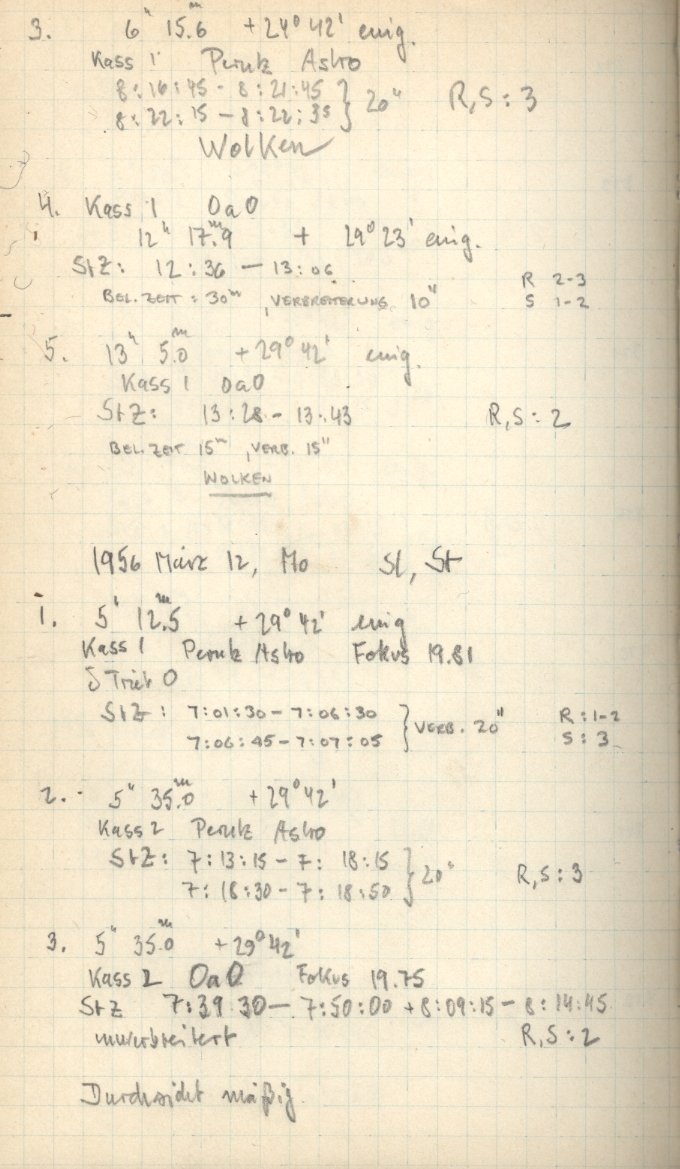 3. 6ʰ 15.6ᵐ +24° 42' einig.
Kass 1 Perutz Astro
8:16:45 - 8:21:45 } 20"
8:22:15 - 8:22:35 R,S: 3
Wolken
4. Kass 1 OaO
12ʰ 17.9ᵐ + 29° 23' einig.
StZ: 12:36 — 13:06
R 2-3
BEL.ZEIT: 30ᵐ, VERBREITERUNG 10"
S 1-2
5. 13ʰ 5.0ᵐ +29° 42' einig.
Kass 1 OaO
StZ: 13:28 - 13:43 R,S: 2
BEL.ZEIT 15ᵐ, VERB. 15"
WOLKEN
1956 März 12, Mo Sl, St
1. 5ʰ 12.5ᵐ +29° 42' einig
Kass 1 Perutz Astro Fokus 19.81
δ Trieb 0
StZ: 7:01:30 - 7:06:30 } VERB. 20" R: 1-2
7:06:45 - 7:07:05 S: 3
2. 5ʰ 35.0ᵐ +29° 42'
Kass 2 Perutz Astro
StZ: 7:13:15 - 7:18:15 } 20" R,S: 3
7:18:30 - 7:18:50
3. 5ʰ 35.0ᵐ +29° 42'
Kass 2 OaO Fokus 19.75
StZ 7:39:30 — 7:50:00 + 8:09:15 - 8:14:45
unverbreitert R,S: 2
Durchsicht mäßig.